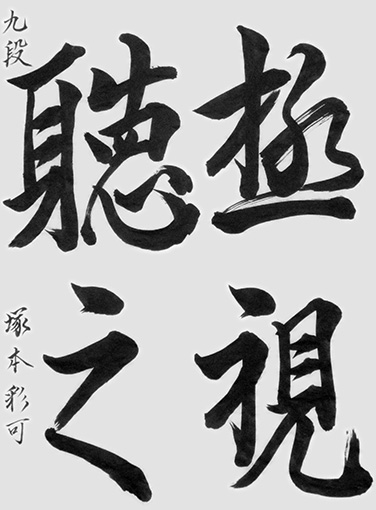 極視
聴之
九段 塚本彩可